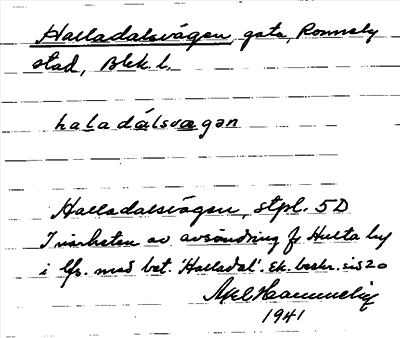 Halladalsvägen, gata, Ronneby
stad, Blek. l.
haladálsvagən
Halladalsvägen, stpl. 5D
I närheten av avsöndring fr Hulta by
i lfs. med bet. 'Halladal'. Ek. beskr. sid 20
1941